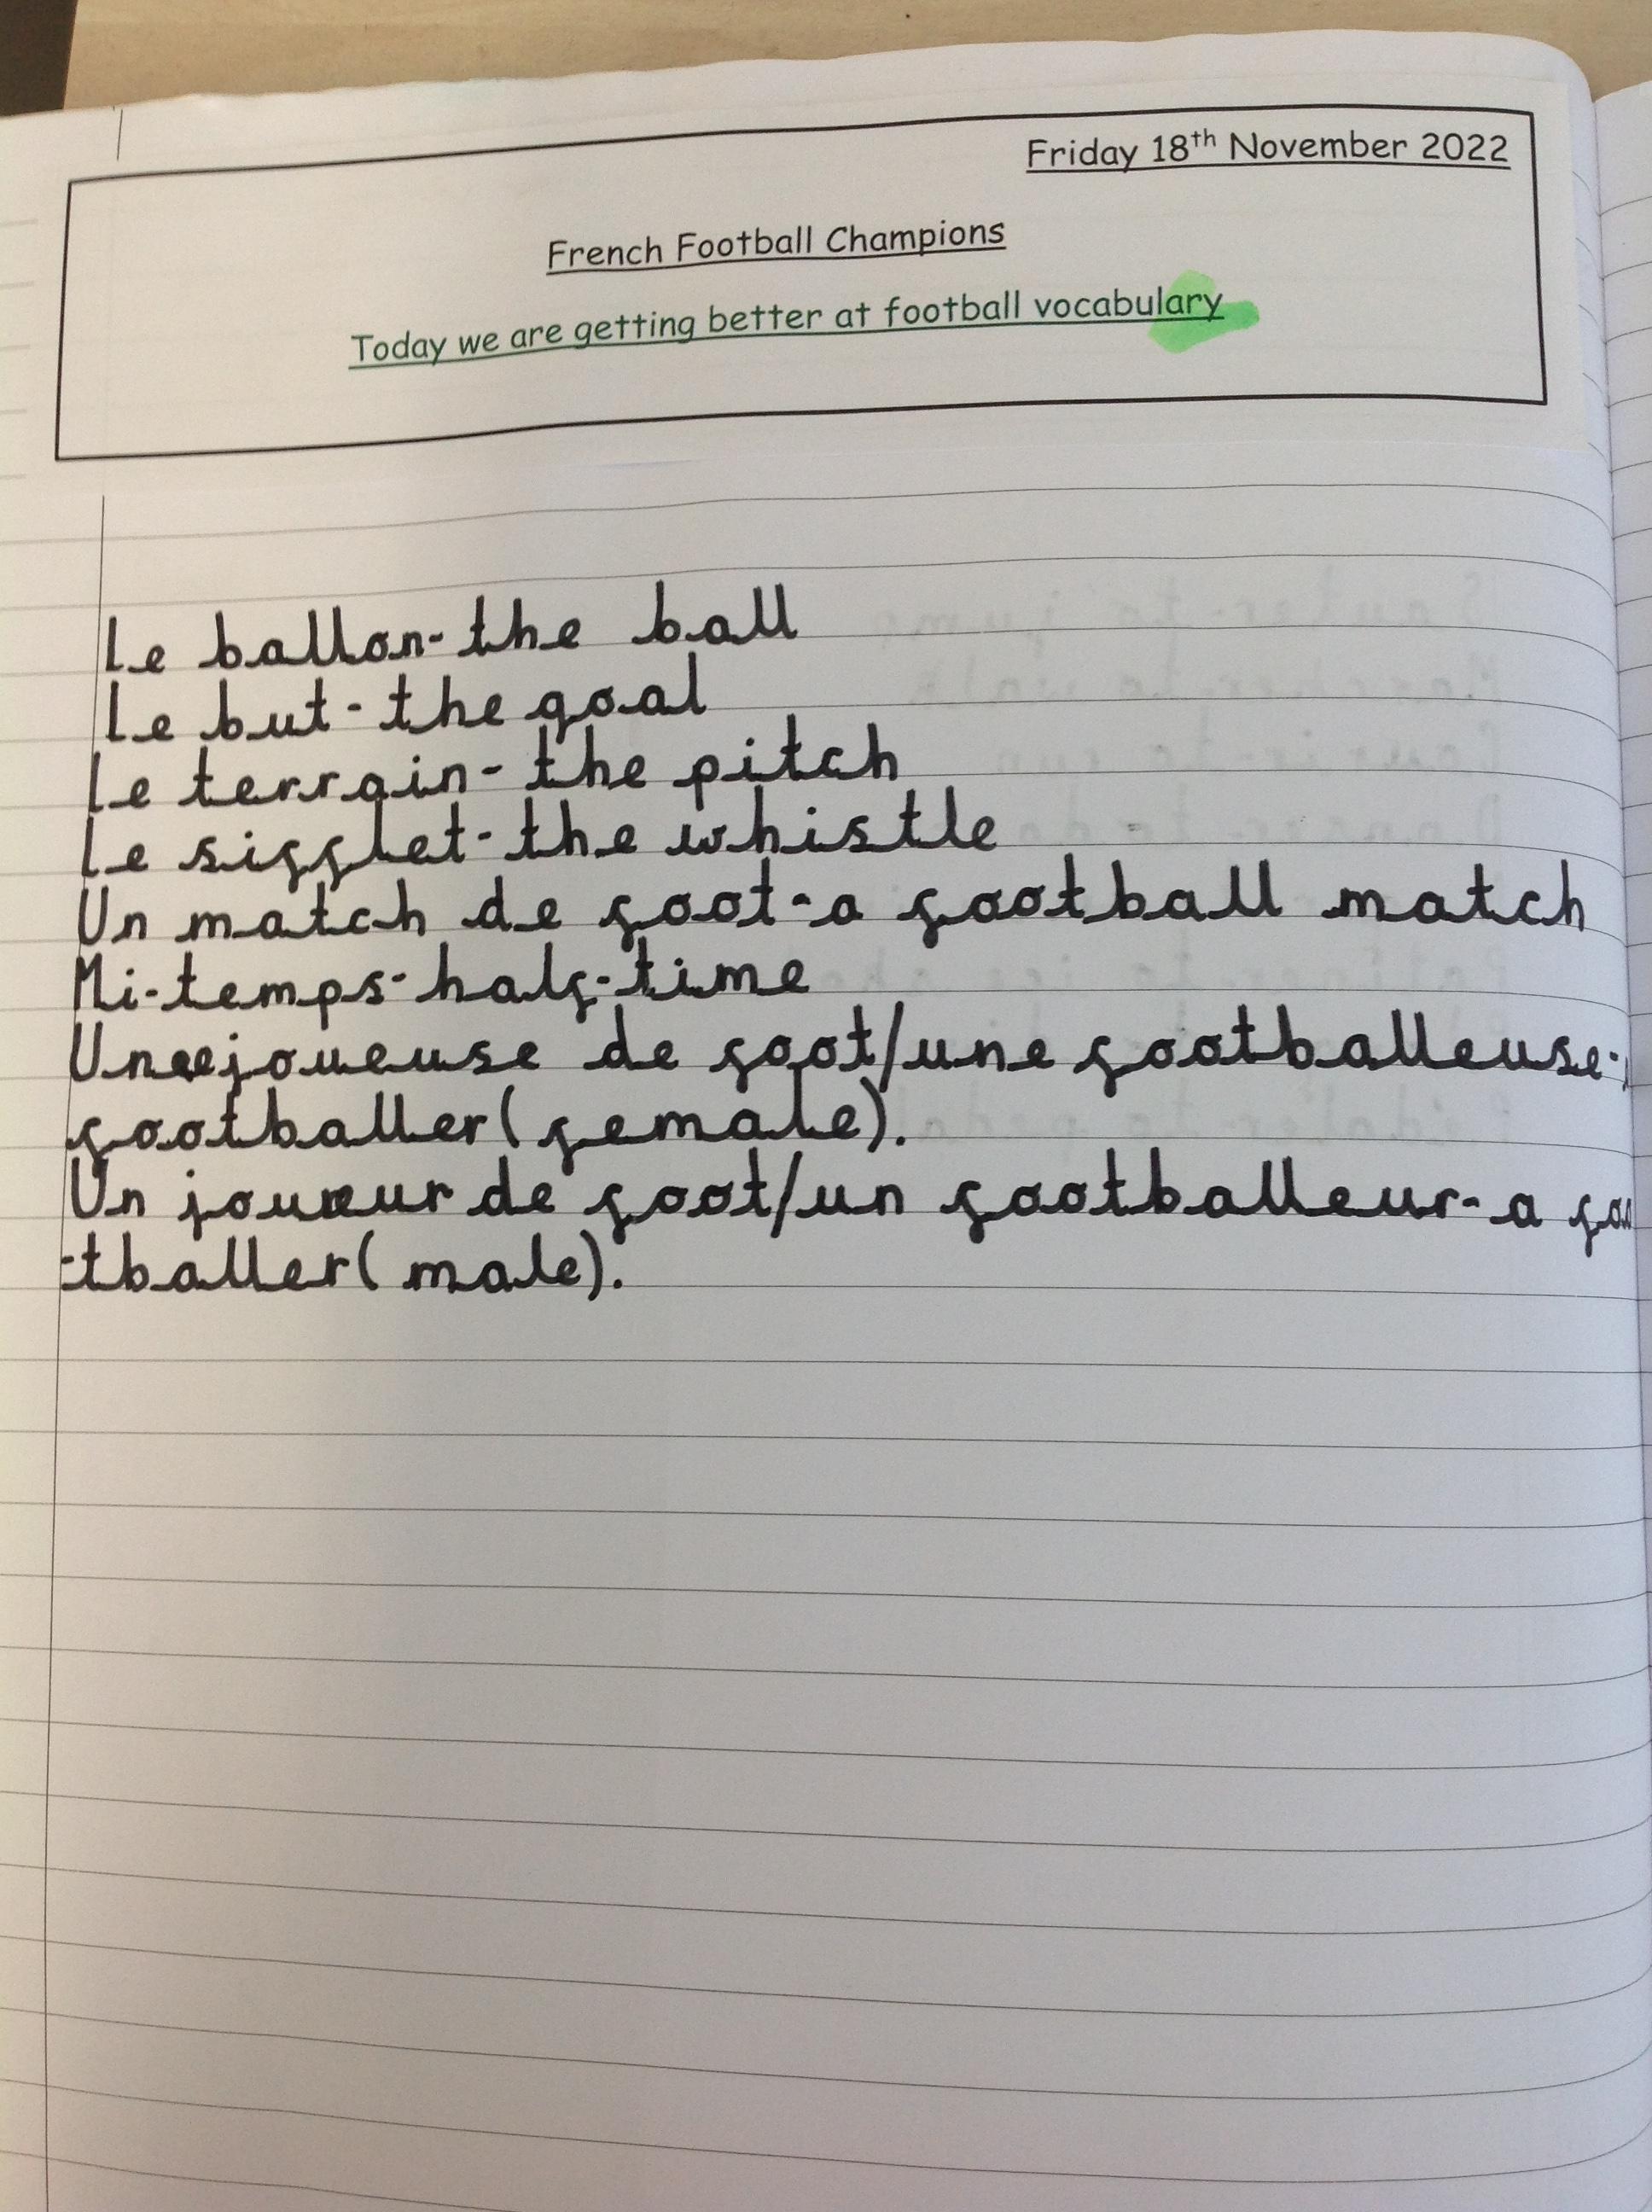 Friday 18th November 2022
French Football Champions
Today we are getting better at football vocabulary
Le ballon-the ball
Le but-the goal
Le terrain-the pitch
Le sifflet-the whistle
Un match de foot-a football match
Mi-temps-half-time
Une joueuse de foot/une footballeuse-
footballer(female).
Un joueur de foot/un footballeur-a foo
-tballer(male).